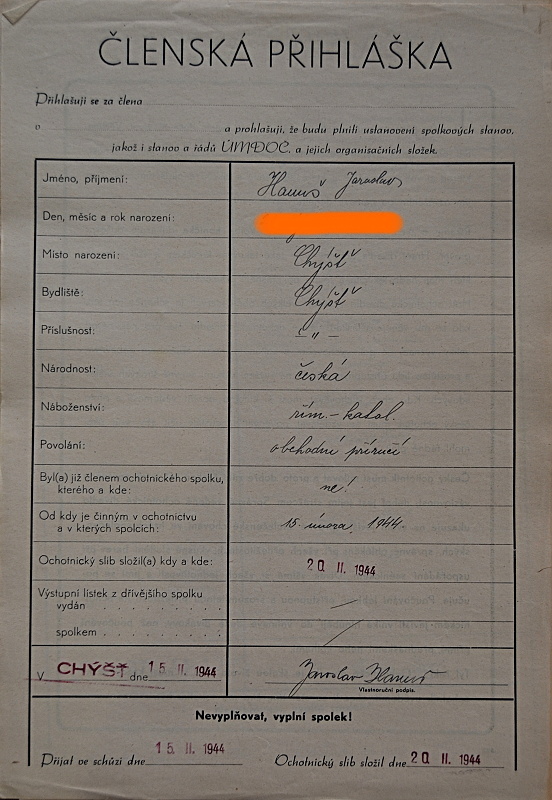 ČLENSKÁ PŘIHLÁŠKA
Přihlašuji se za člena
v a prohlašuji, že budu plniti ustanovení spolkových stanov,
jakož i stanov a řádů ÚMDOČ, a jejich organisačních složek.
Jméno, příjmení: Hanuš Jaroslav
Den, měsíc a rok narození:
Místo narození: Chýšť
Bydliště: Chýšť
Příslušnost: – " –
Národnost: česká
Náboženství: řím. – katol.
Povolání: obchodní příručí
Byl(a) již členem ochotnického spolku,
kterého a kde: ne!
Od kdy je činným v ochotnictvu
a v kterých spolcích: 15. února 1944.
Ochotnický slib složil(a) kdy a kde: 20 II. 1944
Výstupní lístek z dřívějšího spolku
vydán . . . . . . . . . .
spolkem . . . . . . . . .
V CHÝŠŤ dne 15 II. 1944 Jaroslav Hanuš
Vlastnoruční podpis.
Nevyplňovat, vyplní spolek!
Přijat ve schůzi dne 15 II. 1944 Ochotnický slib složil dne 20 II. 1944